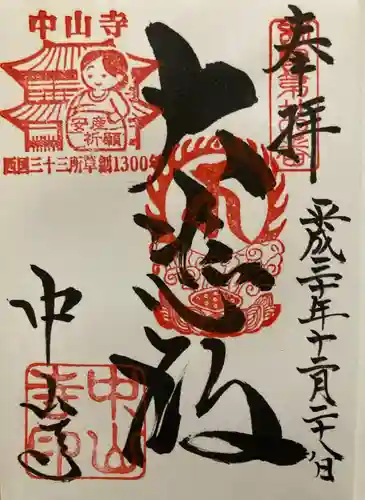 奉拝
平成三十年十二月二十八日
大悲殿
中山寺
中山寺
安産
祈願
西国三十三所草創1300年
中山寺印